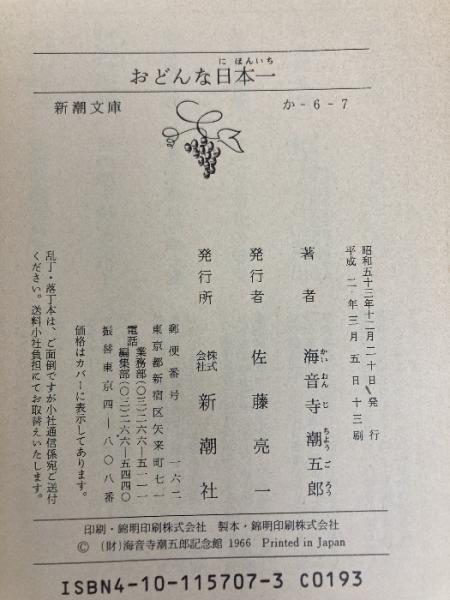 おどんな日本一
にほんいち
新潮文庫
か-6-7
昭和五十三年十二月二十日発行
平成二年三月五日十三刷
著者 海音寺潮五郎
かいおんじちょうごろう
発行者 佐藤亮一
発行所 株式会社 新潮社
郵便番号 一六二
東京都新宿区矢来町七一
電話 業務部(〇三)二六六―五一一一
編集部(〇三)二六六―五四四〇
振替東京四―八〇八番
価格はカバーに表示してあります。
乱丁・落丁本は、ご面倒ですが小社通信係宛ご送付
ください。送料小社負担にてお取替えいたします。
印刷・錦明印刷株式会社 製本・錦明印刷株式会社
© (財)海音寺潮五郎記念館 1966 Printed in Japan
ISBN4-10-115707-3 C0193